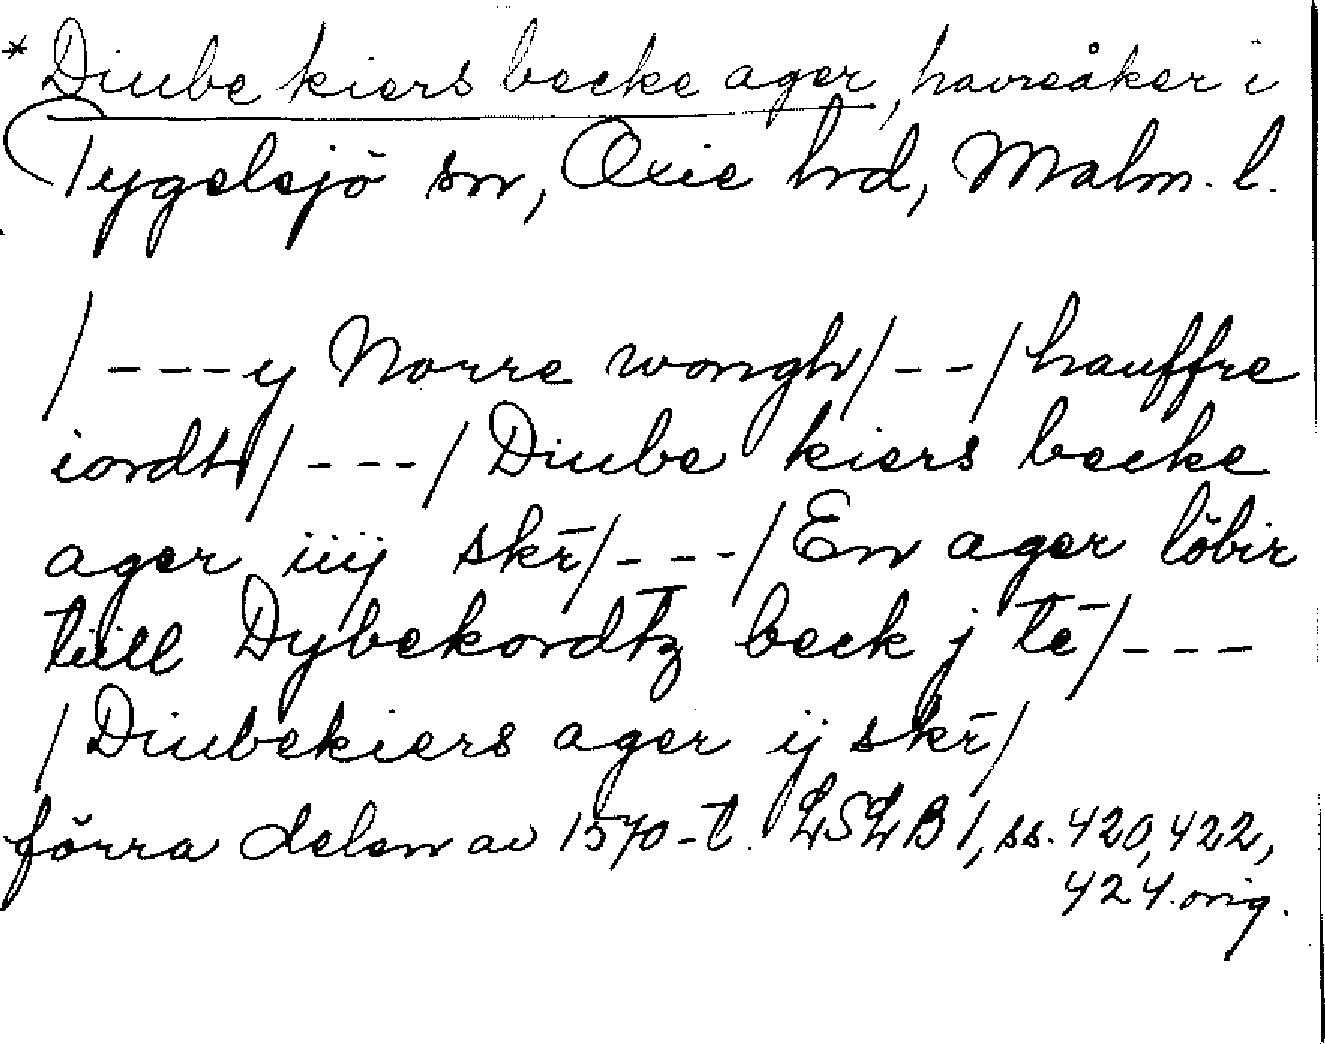 * Diube kiers becke ager, havreåker i
Tygelsjö sn, Oxie hd, Malm. l.
/---y Norre wongh/--/hauffre
iordh/---/Diube kiers becke
ager iiij skr̄/---/En ager löbir
tiill Dybekordtz beck j tē/---
/Diubekiers ager ij skr̄/
förra delen av 1570-t. LSLB 1, ss. 420, 422,
424. orig.